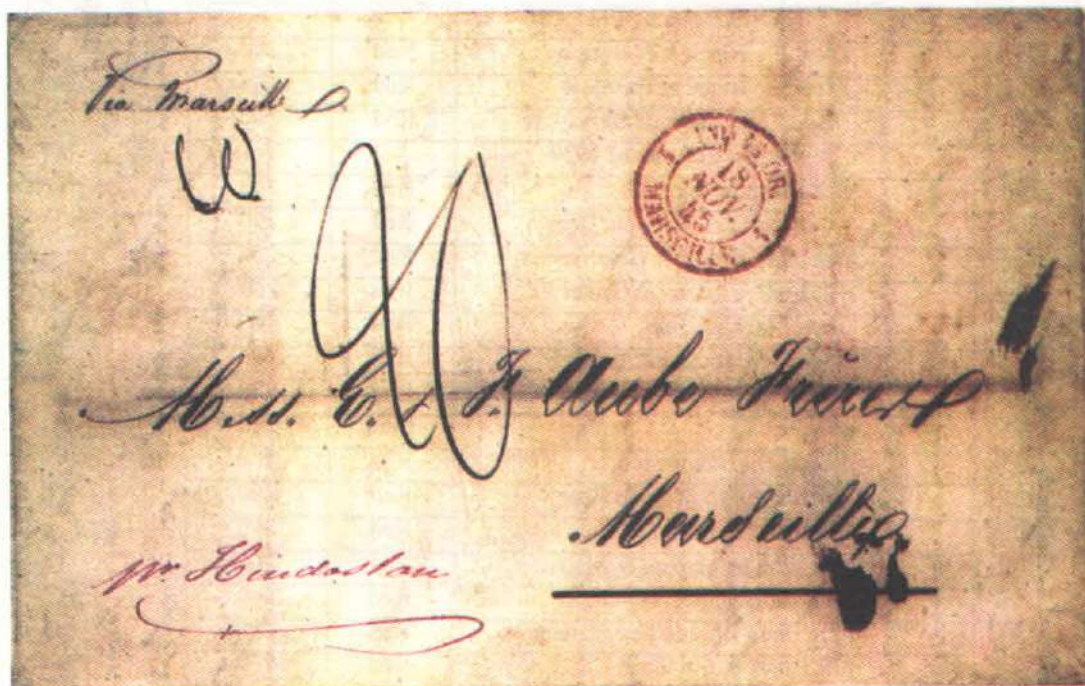 Via Marseille
W
20
18
NOV.
45
MARSEILLE
Mess. E. & F. Aube Frères
Marseille
pr Hindostan